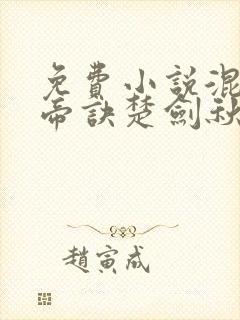 免費小說混
帝訣楚劍秋
趙寅成